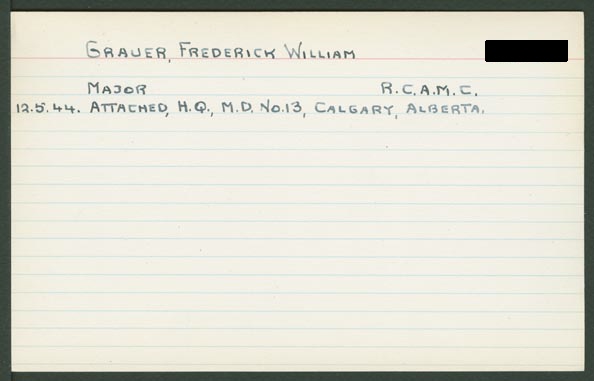 GRAUER, FREDERICK WILLIAM
MAJOR R.C.A.M.C.
12.5.44. ATTACHED, H.Q., M.D. NO.13, CALGARY, ALBERTA.